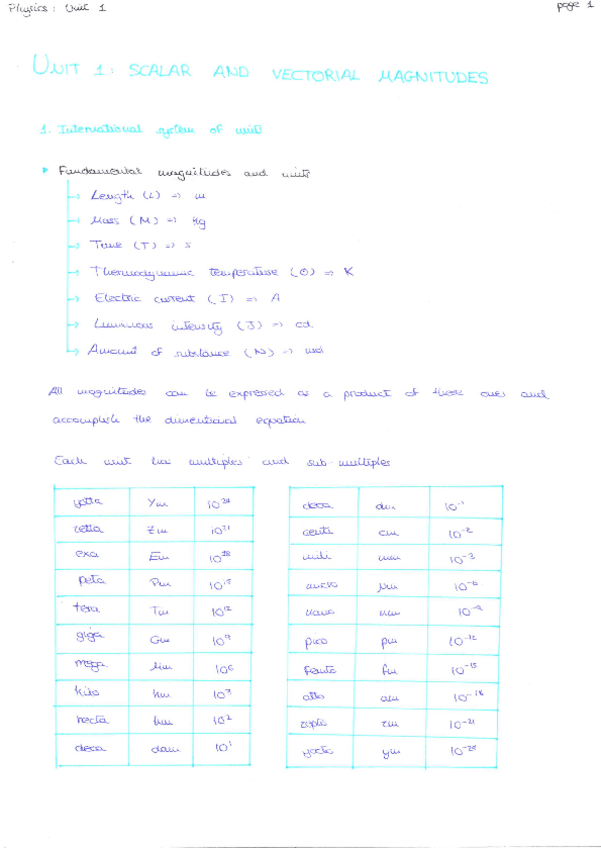 Physics: Unit 1
page 1
UNIT 1: SCALAR AND VECTORIAL MAGNITUDES
1. International system of units
Fundamental magnitudes and units
→ Length (L) => m
→ Mass (M) => Kg
→ Time (T) => s
→ Thermodynamic temperature (Θ) => K
→ Electric current (I) => A
→ Luminous intensity (J) => cd
→ Amount of substance (N) => mol
All magnitudes can be expressed as a product of these ones and
accomplish the dimentional equation
Each unit has multiples and sub-multiples
yotta Ym 10²⁴ deca dm 10⁻¹
zetta Zm 10²¹ centi cm 10⁻²
exa Em 10¹⁸ mili mm 10⁻³
peta Pm 10¹⁵ micro μm 10⁻⁶
tera Tm 10¹² nano nm 10⁻⁹
giga Gm 10⁹ pico pm 10⁻¹²
mega Mm 10⁶ femto fm 10⁻¹⁵
kilo km 10³ atto am 10⁻¹⁸
hecta hm 10² zepto zm 10⁻²¹
deca dam 10¹ yocto ym 10⁻²⁴